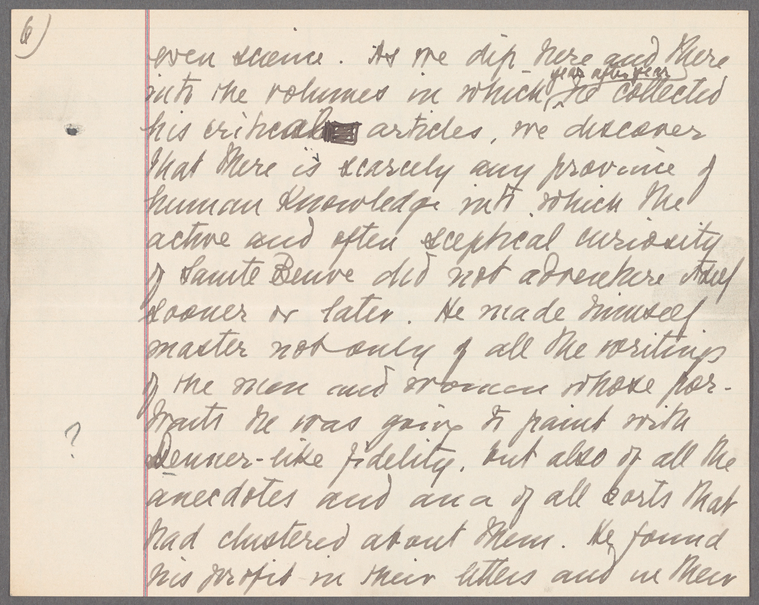 6)
even science. As we dip here and there
year after year
into the volumes in which he collected
his critical articles, we discover
that there is scarcely any province of
human knowledge into which the
active and often sceptical curiosity
of Sainte Beuve did not adventure itself
sooner or later. He made himself
master not only of all the writings
of the men and women whose por-
traits he was going to paint with
? Denner-like fidelity, but also of all the
anecdotes and ana of all sorts that
had clustered about them. He found
his profit in their letters and in their